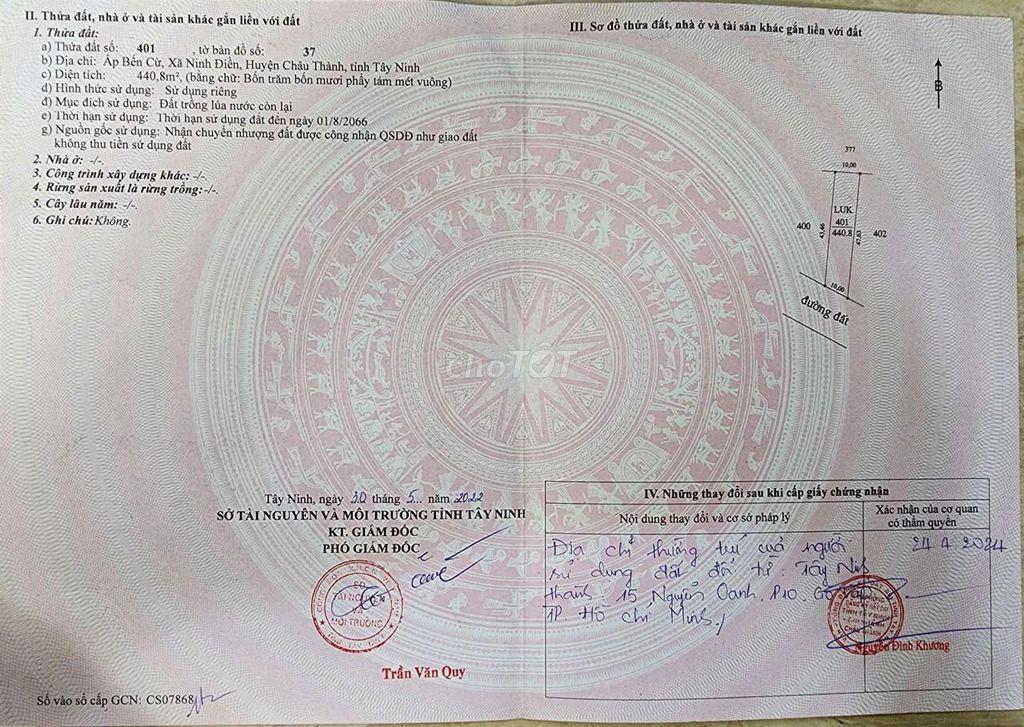 II. Thửa đất, nhà ở và tài sản khác gắn liền với đất
1. Thửa đất:
a) Thửa đất số: 401 , tờ bản đồ số: 37
b) Địa chỉ: Ấp Bến Cừ, Xã Ninh Điền, Huyện Châu Thành, tỉnh Tây Ninh
c) Diện tích: 440,8m², (bằng chữ: Bốn trăm bốn mươi phẩy tám mét vuông)
d) Hình thức sử dụng: Sử dụng riêng
đ) Mục đích sử dụng: Đất trồng lúa nước còn lại
e) Thời hạn sử dụng: Thời hạn sử dụng đất đến ngày 01/8/2066
g) Nguồn gốc sử dụng: Nhận chuyển nhượng đất được công nhận QSDĐ như giao đất
không thu tiền sử dụng đất
2. Nhà ở: -/-.
3. Công trình xây dựng khác: -/-.
4. Rừng sản xuất là rừng trồng:-/-.
5. Cây lâu năm: -/-.
6. Ghi chú: Không.
Tây Ninh, ngày 30 tháng 5... năm 2022
SỞ TÀI NGUYÊN VÀ MÔI TRƯỜNG TỈNH TÂY NINH
KT. GIÁM ĐỐC
PHÓ GIÁM ĐỐC
SỞ
TÀI NGUYÊN
VÀ
MÔI TRƯỜNG
Trần Văn Quy
Số vào sổ cấp GCN: CS07868
III. Sơ đồ thửa đất, nhà ở và tài sản khác gắn liền với đất
B
377
10,00
LUK
401
440.8
400
43,46
47,63
402
10,00
đường đất
choTOT
IV. Những thay đổi sau khi cấp giấy chứng nhận
Nội dung thay đổi và cơ sở pháp lý
Xác nhận của cơ quan
có thẩm quyền
Địa chỉ thường trú của người
sử dụng đất đổi từ: Tây Ninh
thành: 15 Nguyễn Oanh, P10, Gò Vấp
TP. Hồ Chí Minh./
24 4 2024
Nguyễn Đình Khương